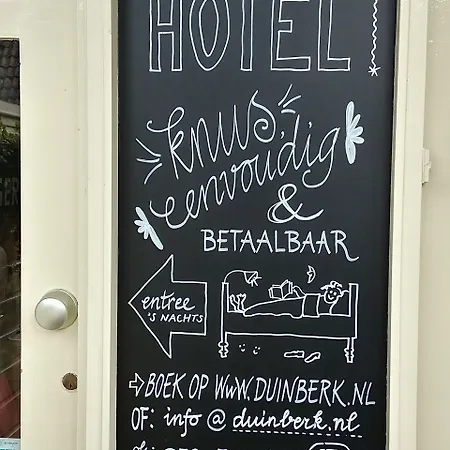 HOTEL
knus,
eenvoudig
&
BETAALBAAR
entree
'S NACHTS
BOEK OP WWW.DUINBERK.NL
OF: info @ duinberk.nl